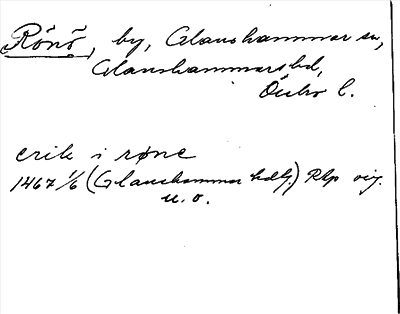 Rönö, by, Glanshammar sn,
Glanshammars hd,
Örebro l.
erik i røne
1467 1/6 (Glanshammar hdlg.) RAp orig.
u. o.